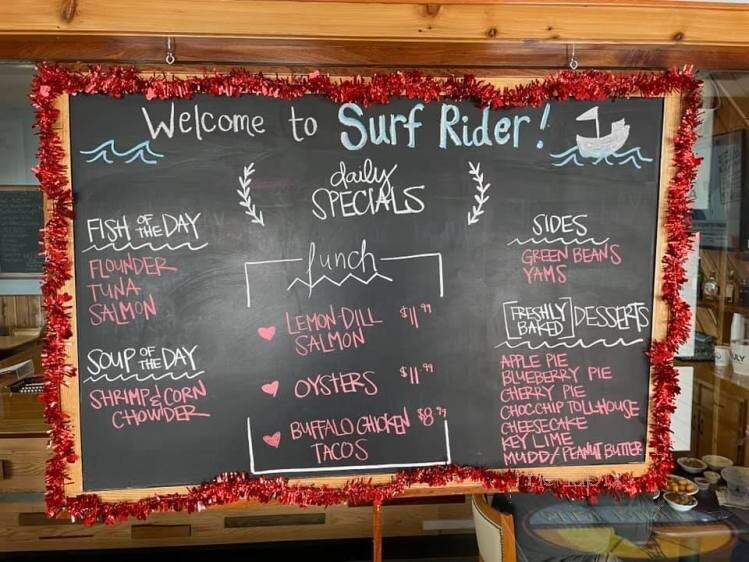 Welcome to Surf Rider!
daily
SPECIALS
FISH OF THE DAY
FLOUNDER
TUNA
SALMON
SOUP OF THE DAY
SHRIMP & CORN
CHOWDER
lunch
LEMON-DILL $11.99
SALMON
OYSTERS $11.99
BUFFALO CHICKEN $8.99
TACOS
SIDES
GREEN BEANS
YAMS
FRESHLY
BAKED DESSERTS
APPLE PIE
BLUEBERRY PIE
CHERRY PIE
CHOC CHIP TOLLHOUSE
CHEESECAKE
KEY LIME
MUDD/PEANUT BUTTER